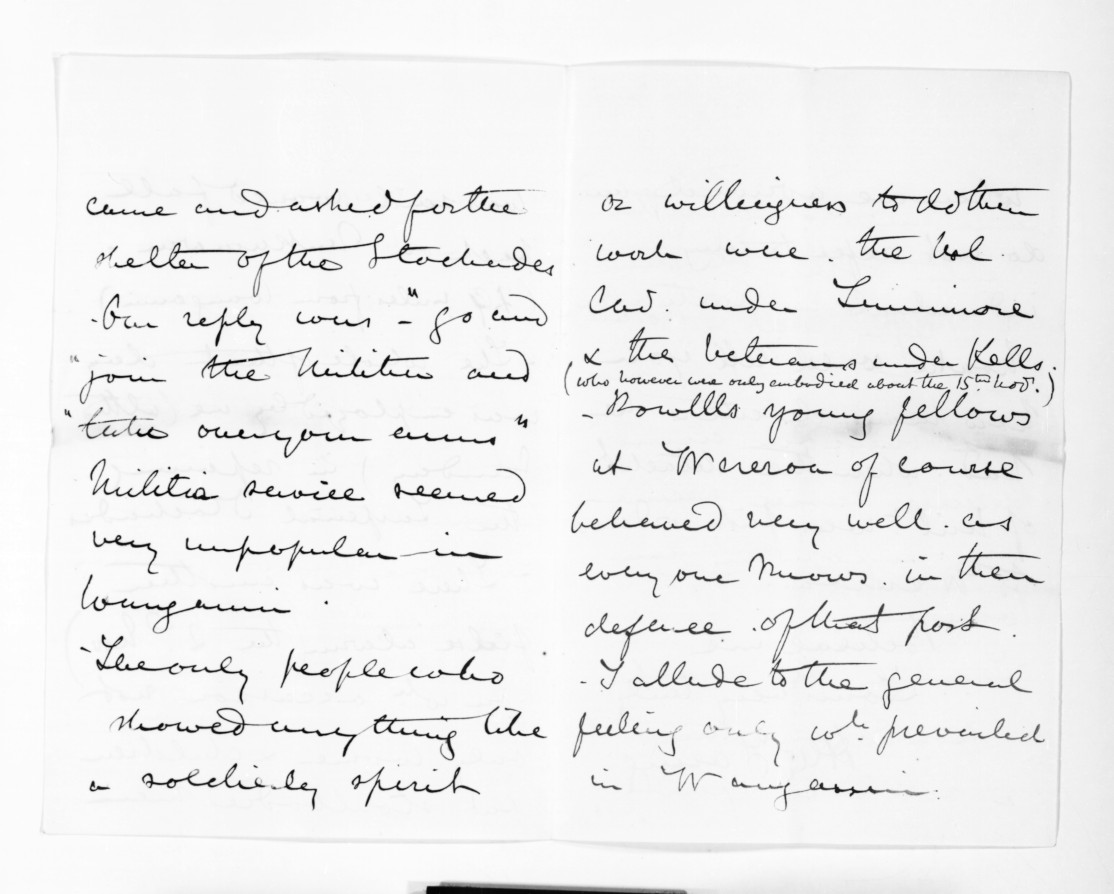 came and asked for the
shelter of the Stockades
- Our reply was - "go and
"join the Militia and
"take over your arms"
Militia service seemed
very unpopular - in
Wanganui.
- The only people who
showed anything like
a soldierly spirit
or willingness to do their
work were the Vol.
Cav. under
& the Veterans under Kells.
(who however were only embodied about the 15th Nov.)
- Powells young fellows
at Wereroa of course
behaved very well. as
everyone knows. in their
defence. of that post.
- I allude to the general
feeling only wh. prevailed
in Wanganui.